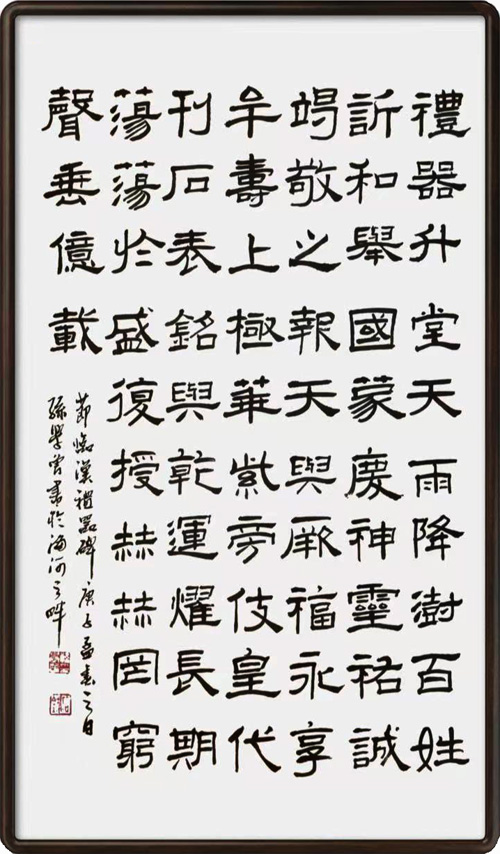 禮器升堂天雨降澍百姓
訢和舉國蒙慶神靈祐誠
竭敬之報天與厥福永享
牟壽上極華紫旁伎皇代
刊石表銘與乾運燿長期
蕩蕩於盛復授赫赫罔窮
聲垂億載
節臨漢禮器碑庚子孟春之日
孫學雲書於海河之畔